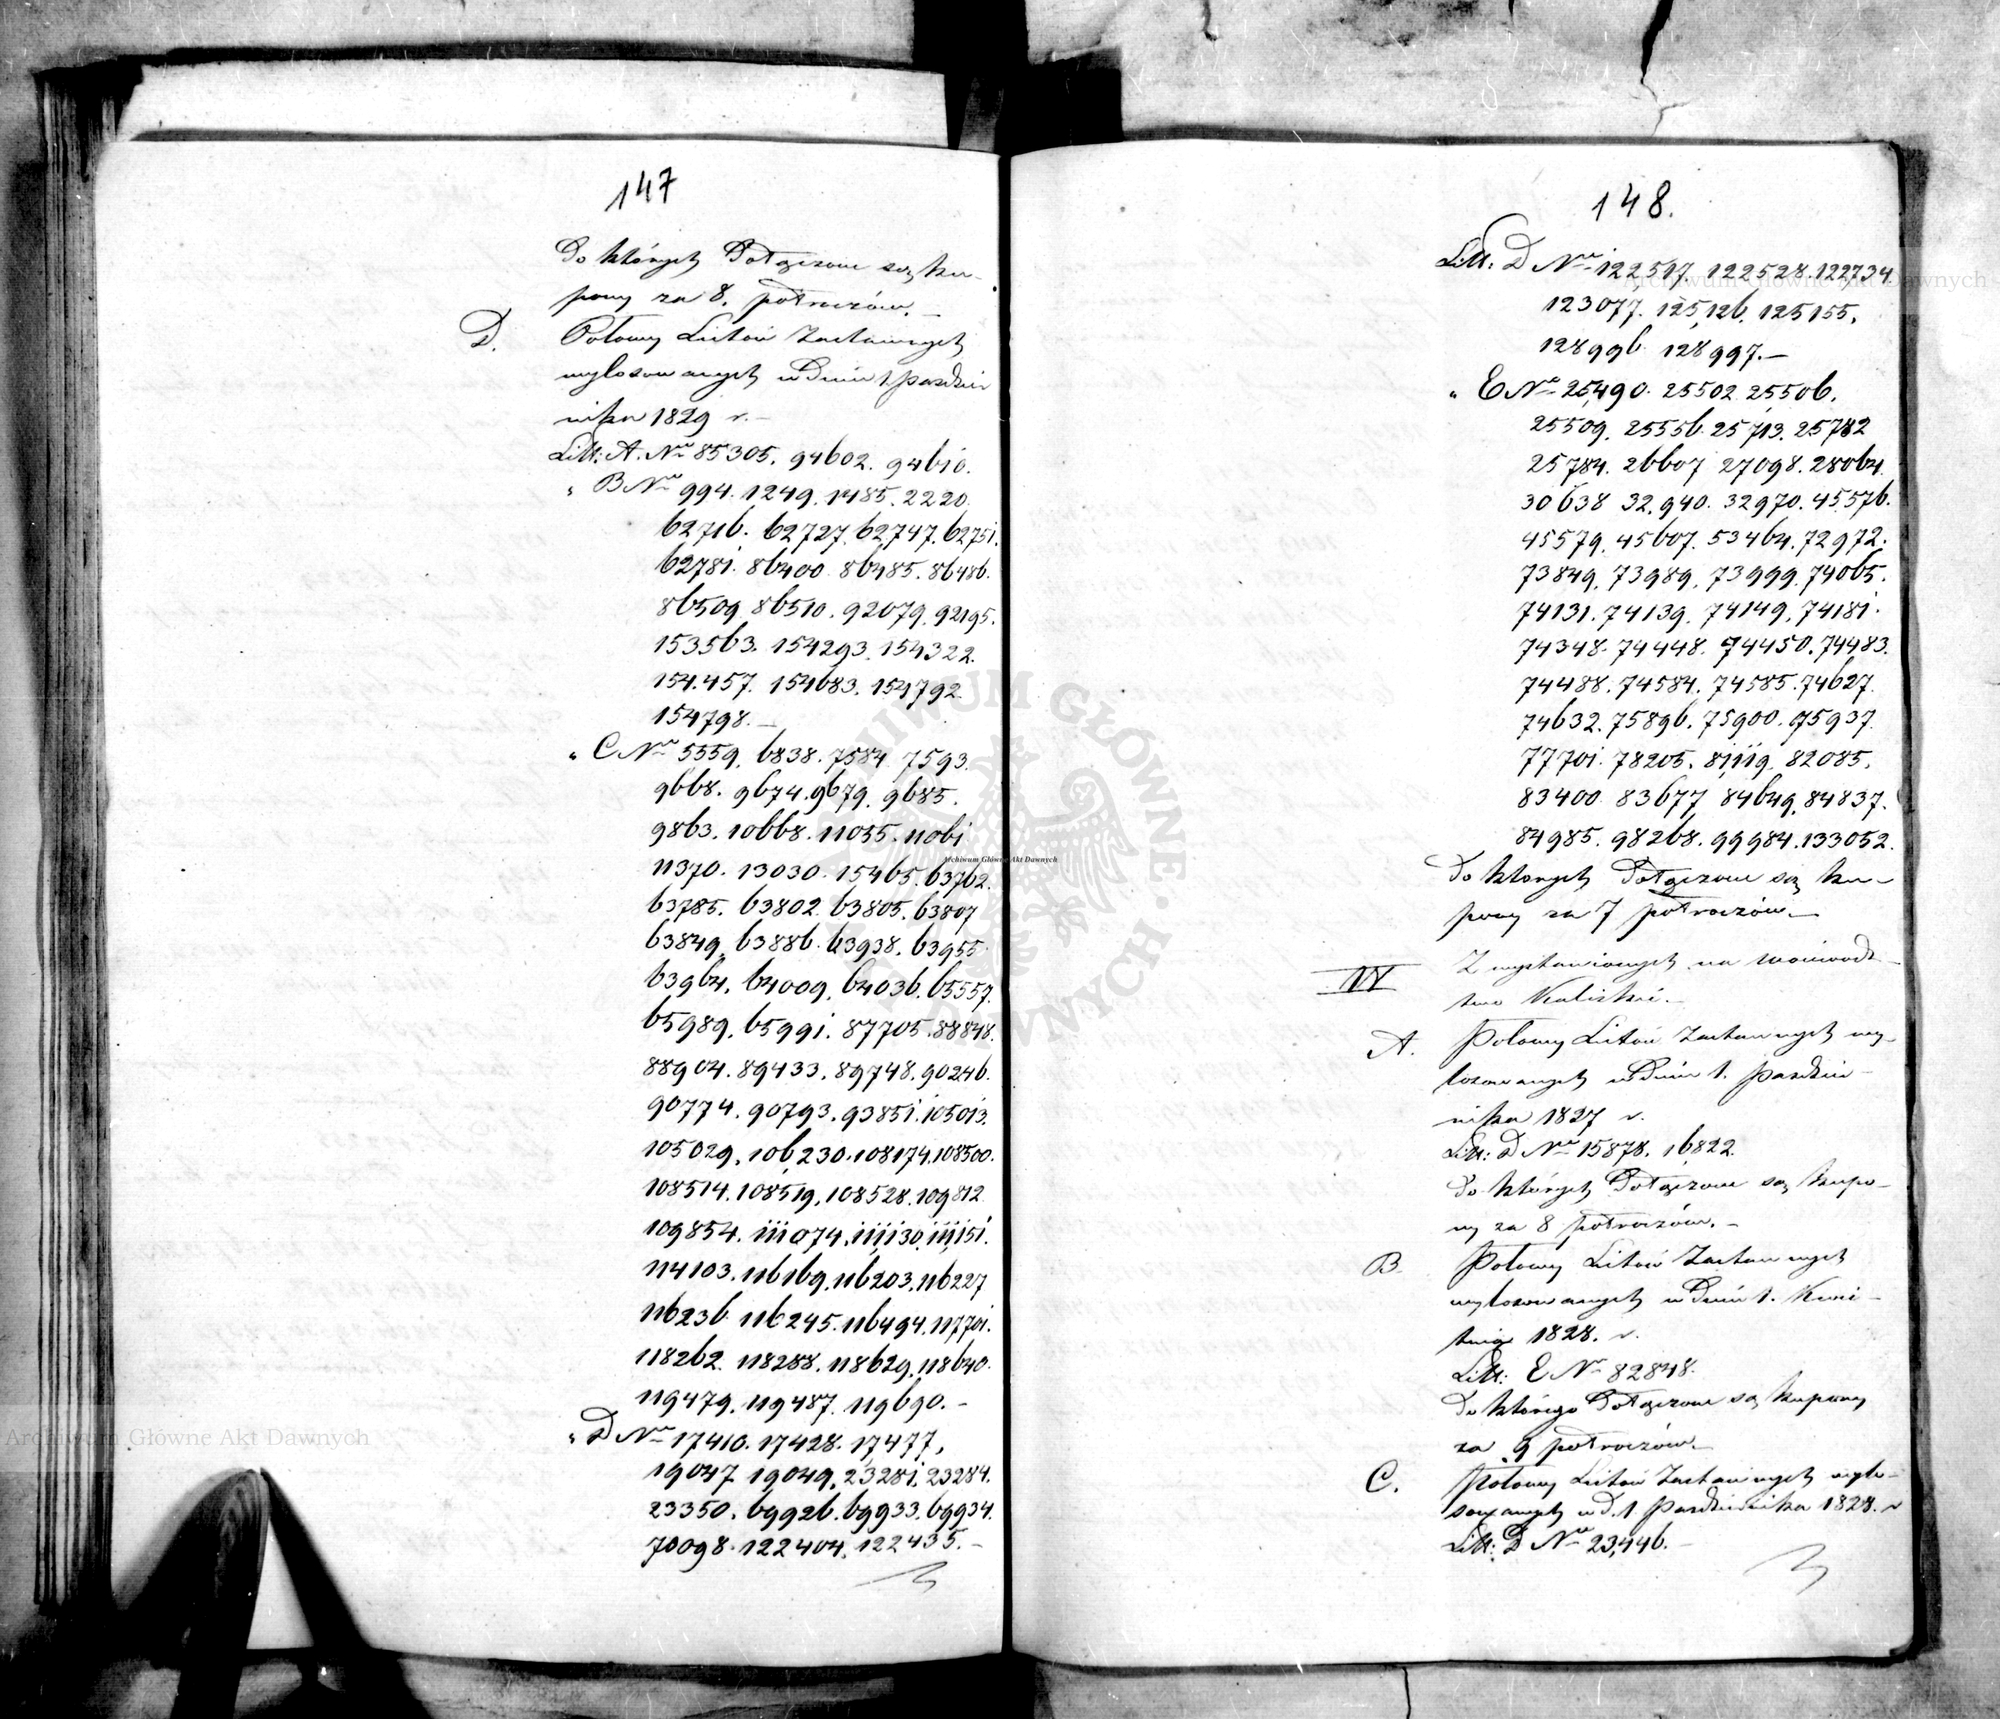 147
Do których Dołączone są ku-
pony za 8. półroczów. –
D. Połowy Listów Zastawnych
wylosowanych w Dniu 1 Paździer
nika 1829 r. –
Litt: A. Nro 85305. 94602. 94610.
" B Nro 994. 1249. 1485. 2220.
62716. 62727. 62747. 62751.
62781. 86400. 86485. 86486.
86509. 86510. 92079. 92195.
153563. 154293. 154322.
154.457. 154683. 154792.
154798. –
" C Nro 5559. 6838. 7584. 7593.
9668. 9674. 9679. 9685.
9863. 10668. 11055. 11061
11370. 13030. 15465. 63762.
63785. 63802. 63805. 63807
63849. 63886. 63938. 63955.
63964. 64009. 64036. 65557.
65989. 65991. 87705. 88848.
88904. 89433. 89748. 90246.
90774. 90793. 93851. 105013.
105029. 106230. 108174. 108500.
108514. 108519. 108528. 109812
109854. 111074. 111130. 111151.
114103. 116169. 116203. 116227
116236. 116245. 116494. 117701.
118262. 118288. 118629. 118640.
119479. 119487. 119690. –
" D Nro 17410. 17428. 17477,
19047. 19049. 23281. 23284.
23350. 69926. 69933. 69934.
70098. 122404. 122435. –
148.
Litt: D Nro 122517. 122528. 122734
123077. 125,126. 125155.
128996. 128997. –
" E Nro 25,490. 25502. 25506.
25509. 25556. 25713. 25782
25784. 26607. 27098. 28064.
30638. 32,940. 32970. 45576.
45579. 45607. 53464. 72972.
73849. 73989. 73999. 74065.
74131. 74139. 74149. 74181.
74348. 74448. 74450. 74483.
74488. 74584. 74585. 74627.
74632. 75896. 75900. 75937.
77701. 78205. 81,119. 82085.
83400. 83677. 84649. 84837.
84985. 98268. 99984. 133052.
Do których Dołączone są ku-
pony za 7 półroczów. –
IV Z wystawionych na Wojewódz-
two Kaliskie. –
A. Połowy Listów Zastawnych wy-
losowanych w Dniu 1. Paździer-
nika 1827 r.
Litt: D Nro 15878. 16822.
Do których Dołączone są kupo-
ny za 8 półroczów. –
B Połowy Listów Zastawnych
wylosowanych w Dniu 1. Kwie-
tnia 1828. r.
Litt: E Nr 82848.
Do którego Dołączone są kupony
za 9 półroczów. –
C. Połowy Listów Zastawnych wylo-
sowanych w D. 1 Października 1828. r
Litt: D Nro 23,446. –
Archiwum Główne Akt Dawnych
Archiwum Główne Akt Dawnych
Archiwum Główne Akt Dawnych